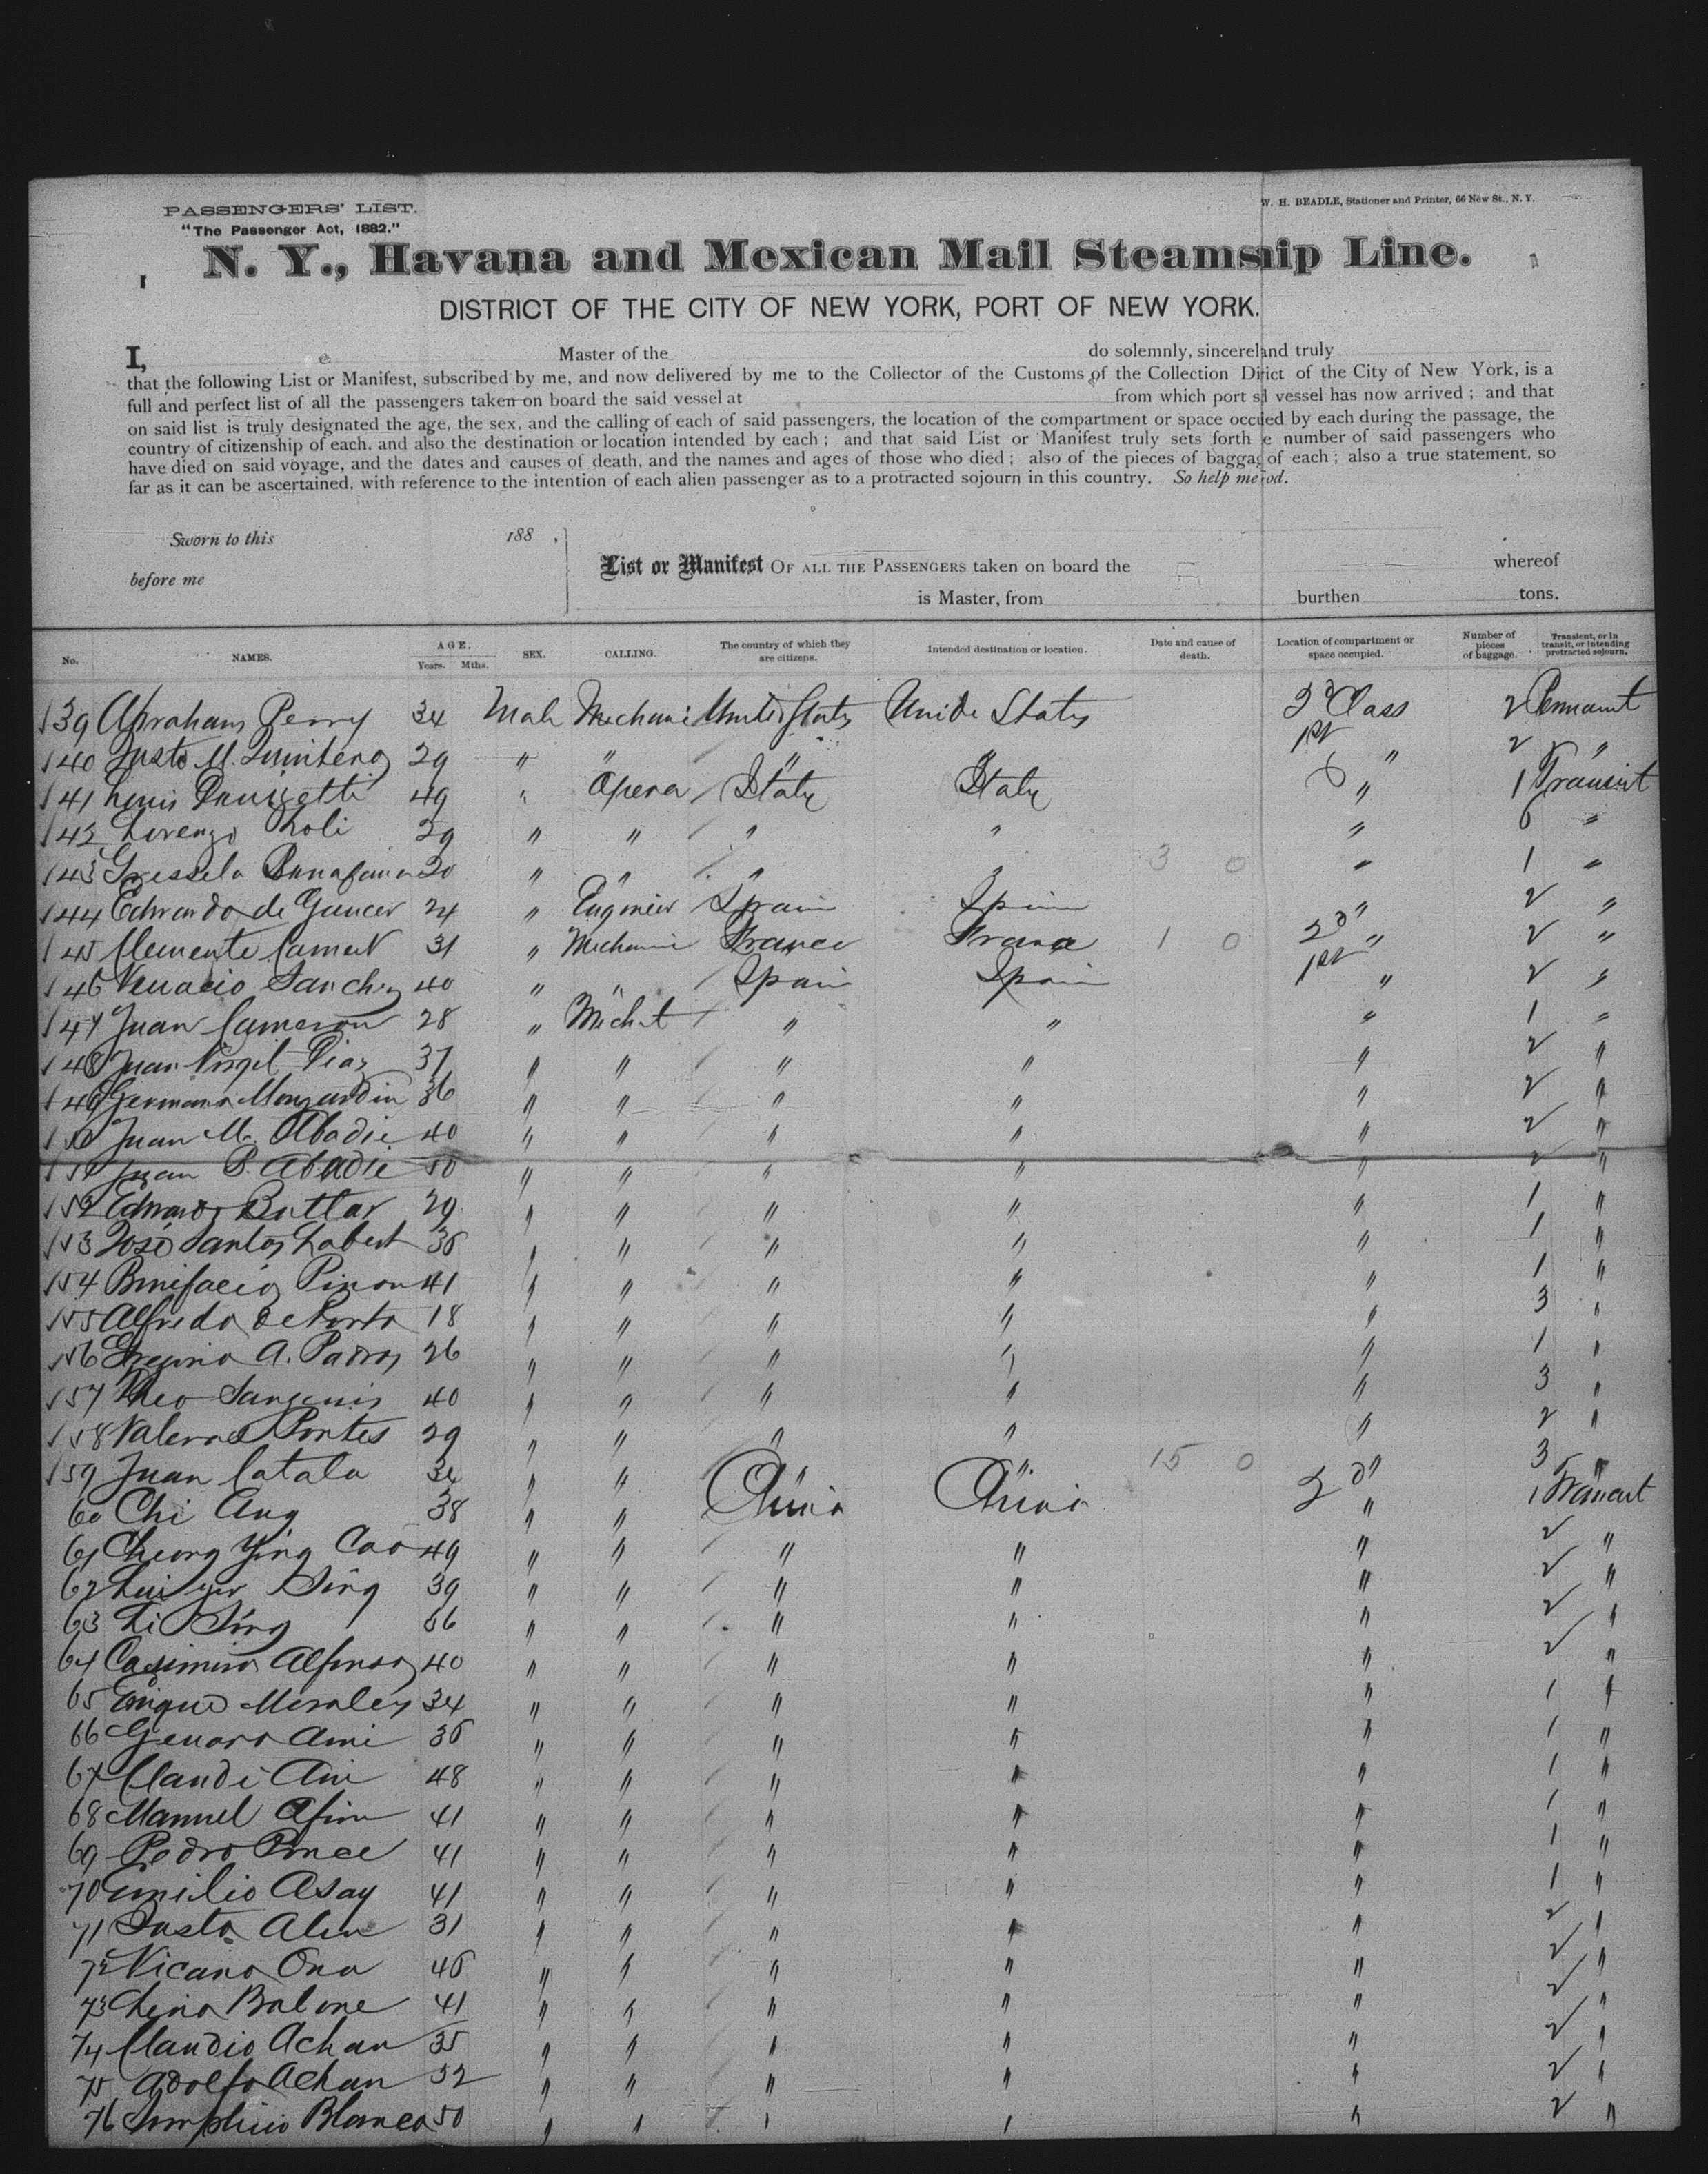 PASSENGERS' LIST.
W. H. BEADLE, Stationer and Printer, 66 New St., N. Y.
"The Passenger Act, 1882."
N. Y., Havana and Mexican Mail Steamship Line.
DISTRICT OF THE CITY OF NEW YORK, PORT OF NEW YORK.
I, Master of the do solemnly, sincerel and truly
that the following List or Manifest, subscribed by me, and now delivered by me to the Collector of the Customs of the Collection Di ict of the City of New York, is a
full and perfect list of all the passengers taken on board the said vessel at from which port s d vessel has now arrived ; and that
on said list is truly designated the age, the sex, and the calling of each of said passengers, the location of the compartment or space occu ied by each during the passage, the
country of citizenship of each, and also the destination or location intended by each ; and that said List or Manifest truly sets forth e number of said passengers who
have died on said voyage, and the dates and causes of death, and the names and ages of those who died ; also of the pieces of bagga of each ; also a true statement, so
far as it can be ascertained, with reference to the intention of each alien passenger as to a protracted sojourn in this country. So help me od.
Sworn to this 188 .
before me
List or Manifest OF ALL THE PASSENGERS taken on board the whereof
is Master, from burthen tons.
No. NAMES. AGE. Years. Mths. SEX. CALLING. The country of which they are citizens. Intended destination or location. Date and cause of death. Location of compartment or space occupied. Number of pieces of baggage. Transient, or in transit, or intending protracted sojourn.
139 Abraham Perry 34 Male Mechani United States Unide States 2d Class 2
140 Justo M. Quintero 29 " " " " 1st " 2 "
141 Louis 49 " Opera Italy Italy " 1 Transit
142 Lorenzo 29 " " " " " 6 "
143 20 " " " " 3 0 " 1 "
144 Edwardo de 24 " Engineer Spain Spain " 2 "
145 Clemente 31 " Mechanic France France 1 0 2d " 2 "
146 Sanchez 40 " " Spain Spain 1st " 2 "
147 Juan Cameron 28 " Mechat " " " 1 "
148 Juan Virgil Diaz 37 " " " " " 2 "
149 Germana 36 " " " " " 2 "
150 Juan M. Abadie 40 " " " " " 2 "
151 Juan P. Abadie 50 " " " " " 2 "
152 Edward Butlar 29 " " " " " 1 "
153 José Santos Labert 36 " " " " " 1 "
154 Bonifacio Pinon 41 " " " " " 1 "
155 Alfredo de Porto 18 " " " " " 3 "
156 A. Padros 26 " " " " " 1 "
157 Theo Sangenis 40 " " " " " 3 "
158 Pontes 29 " " " " " 2 "
159 Juan Catala 34 " " " " 15 0 " 3 "
60 Chi Ang 38 " " China China 2d " 1 Transit
61 Cheong Ying Cao 49 " " " " " 2 "
62 Sing 39 " " " " " 2 "
63 Li Sing 56 " " " " " 2 "
64 Casimiro Alfonso 40 " " " " " 2 "
65 Enique Morales 34 " " " " " 1 "
66 Genaro Ami 36 " " " " " 1 "
67 Claudi 48 " " " " " 1 "
68 Manuel Afin 41 " " " " " 1 "
69 Pedro Ponce 41 " " " " " 1 "
70 Emilio Asay 41 " " " " " 1 "
71 Justo 31 " " " " " 2 "
72 Nicano Ona 46 " " " " " 2 "
73 41 " " " " " 2 "
74 Claudio Achan 35 " " " " " 2 "
75 Adolfo Achan 52 " " " " " 2 "
76 Simplicio Blanco 50 " " " " " 2 "